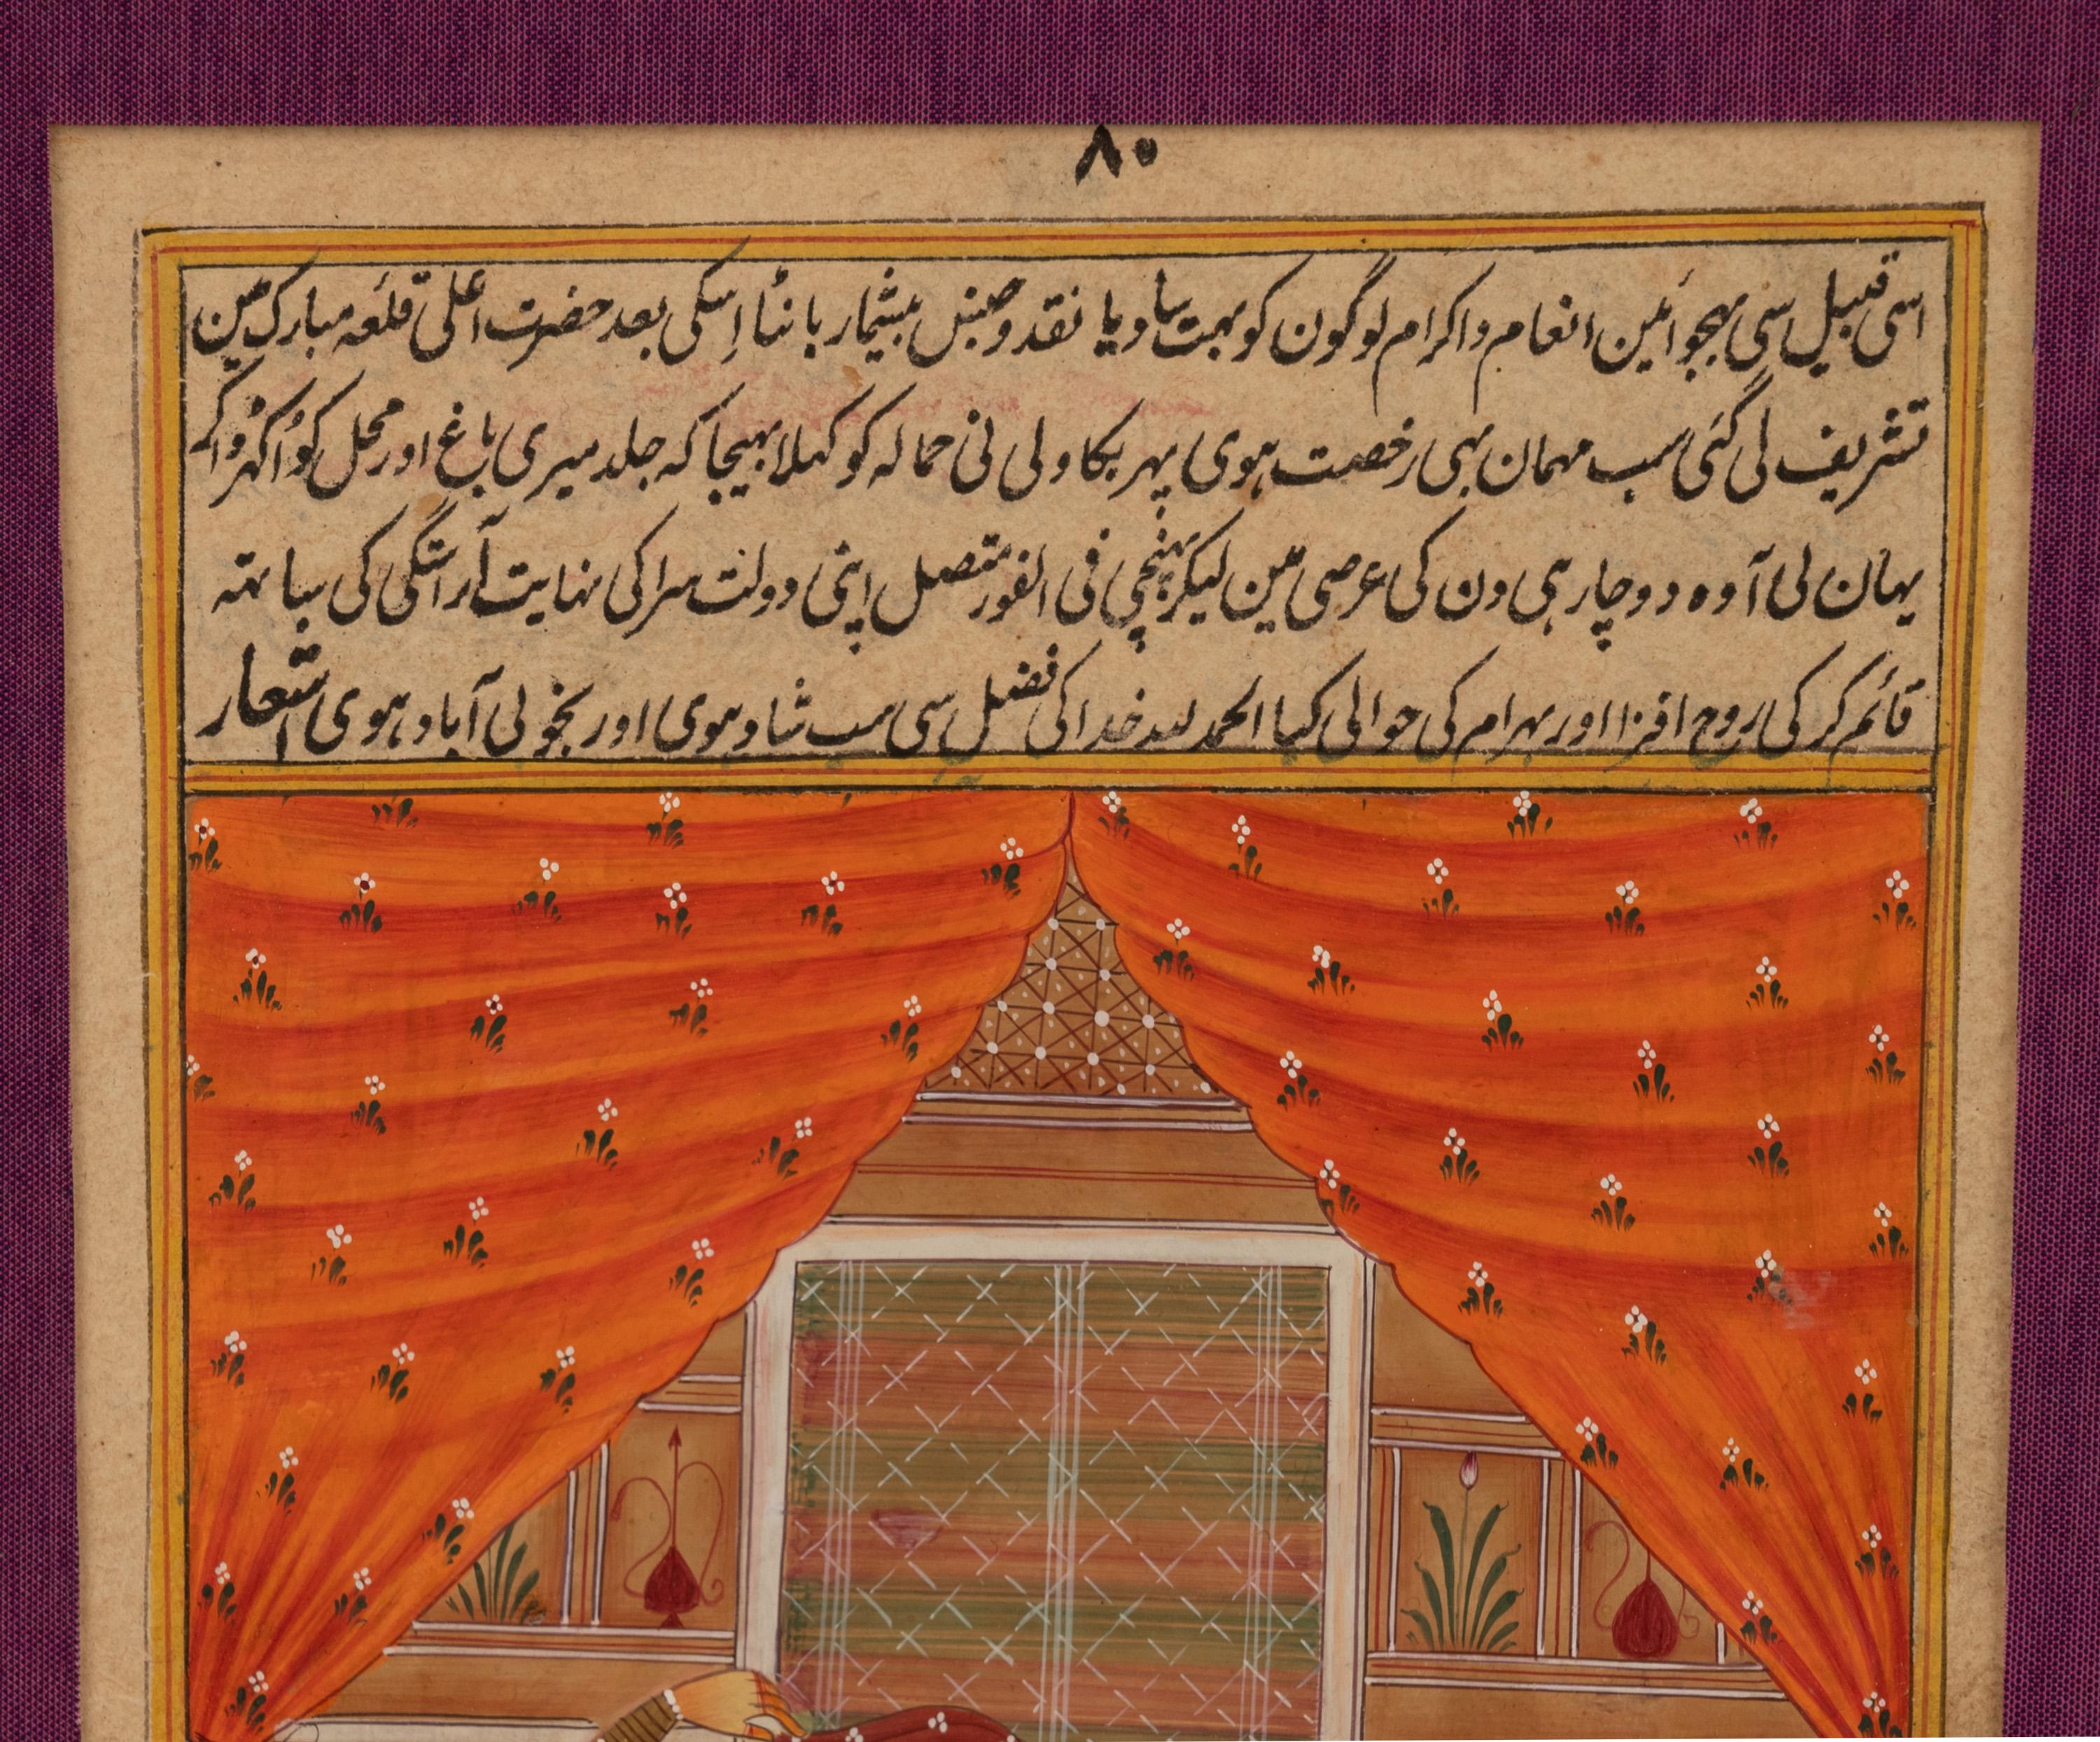 ۸۰
اسی قبیل اسی بھجوائین انعام و اکرام لوگون کو بہت سا دیا نقد و جنس بیشمار بانٹا اِسکی بعد حضرت اعلی قلعہ مبارک مین
تشریف لی گئی سب مہمان بہی رخصت ہوی پہر بکاولی نی حمالہ کو کہلا بہیجا کہ جلد میری باغ اور محل کو اُکہڑوا کر
یہان لی آ وہ دو چار ہی دن کی عرصی مین لیکر پہنچی فی الفور متصل اپنی دولت سرا کی نہایت آراستگی کی ساتہہ
قائم کر کی روح افزا اور بہرام کی حوالی کیا الحمد للہ خدا کی فضل سی سب شاد ہوی اور بخوبی آباد ہوی اشعار